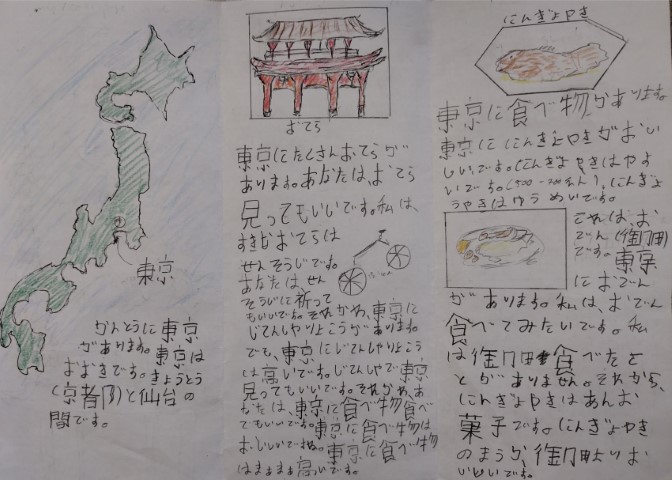 東京
かんとうに東京
があります。東京は
おおきです。きょうとう
(京都)と仙台の
間です。
おてら
東京にたくさんおてらが
あります。あなたは、おてら
見ってもいいです。私は、
すきなおてらは
せんそうじです。
あなたは、せん
そうじに祈って
もいいです。それから、東京に
じてんしゃりょこうがあります。
でも、東京にじてんしゃりょこう
は高いです。じてんしゃで東京
見ってもいいです。それから、あ
なたは、東京に食べ物食べ
てもいいです。東京に食べ物は
おいしいですね。東京に食べ物
はまぁまぁ高いです。
にんぎょやき
東京に食べ物があります。
東京ににんぎょやきがおい
しいです。にんぎょやきはやす
いです。にんぎょ
うやきはゆうめいです。
これは、お
でん
です。東京
におでん
があります。私は、おでん
食べてみたいです。私
は食べたこ
とがありません。それから、
にんぎょやきはあんお
菓子です。にんぎょやき
のほうが、よりお
いしいです。